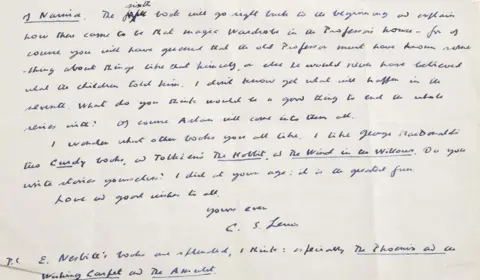 of Narnia. The sixth book will go right back to the beginning and explain
how there came to be that magic Wardrobe in the Professor's house - for of
course you will have guessed that the old Professor must have known some
-thing about things like that himself, or else he would never have believed
what the children told him. I don't know yet what will happen in the
seventh. What do you think would be a good thing to end the whole
series with? Of course Aslan will come into them all.
I wonder what other books you all like. I like George MacDonald's
two Curdy books, and Tolkien's The Hobbit, and The Wind in the Willows. Do you
write stories yourselves? I did at your age: it is the greatest fun.
Love and good wishes to all.
yours ever
C. S. Lewis
P.S. E. Nesbitt's books are splendid, I think: especially The Phoenix and the
Wishing Carpet and The Amulet.